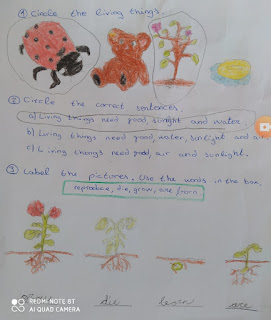 ① Circle the living things.
② Circle the correct sentences.
a) Living things need food, sunlight and water.
b) Living things need food, water, sunlight and air.
c) Living things need food, air and sunlight.
③ Label the pictures. Use the words in the box.
reproduce, die, grow, are born
die
are
REDMI NOTE 8T
AI QUAD CAMERA